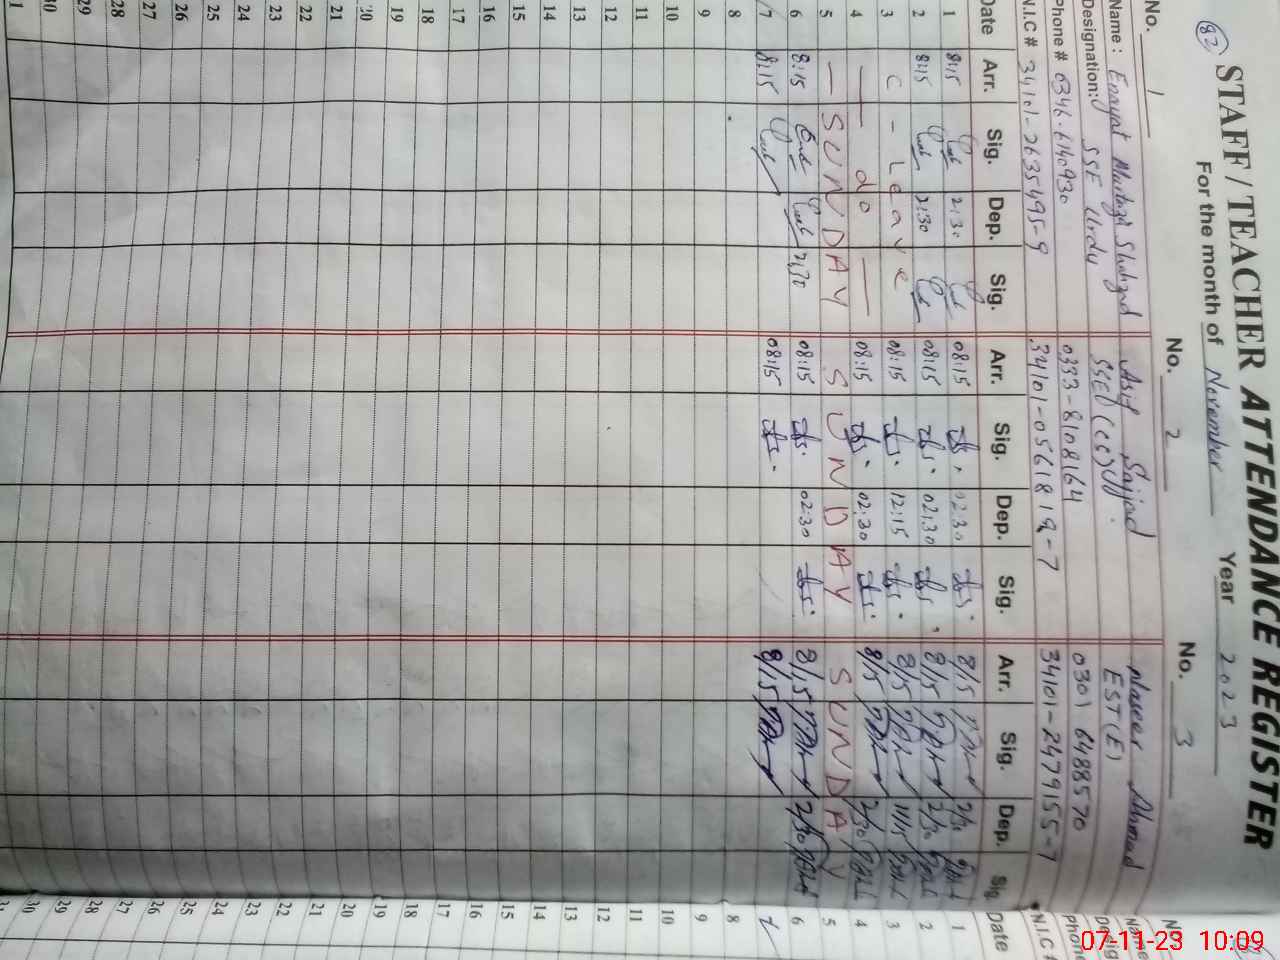 82
STAFF / TEACHER ATTENDANCE REGISTER
For the month of November Year 2023
No. 1 No. 2 No. 3
Name : Enayat Shahzad Asif Sajjad Naseer Ahmad
Designation: SSE Urdu EST(E)
Phone # 0346-6140930 0333-8108164 0301 6488570
N.I.C # 34101-2635495-9 34101-0561819-7 34101-2479155-7
Date Arr. Sig. Dep. Sig. Arr. Sig. Dep. Sig. Arr. Sig. Dep. Sig. Date
1 8:15 2:30 08:15 02:30 8/15 2/30 1
2 8:15 2:30 08:15 02:30 8/15 2/30 2
3 C - Leave 08:15 12:15 8/15 11/15 3
4 — do — 08:15 02:30 8/15 2/30 4
5 — SUNDAY SUNDAY SUNDAY 5
6 8:15 2:30 08:15 02:30 8/15 2/30 6
7 8:15 08:15 8/15 7
8 8
9 9
10 10
11 11
12 12
13 13
14 14
15 15
16 16
17 17
18 18
19 19
20 20
21 21
22 22
23 23
24 24
25 25
26 26
27 27
28 28
29 29
30 30
31
07-11-23 10:09